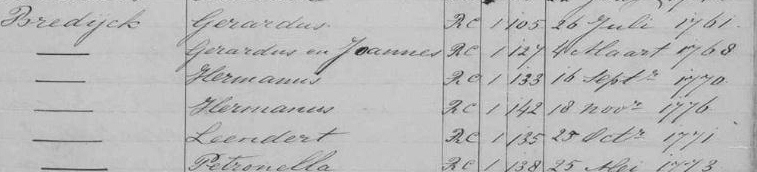 Bredijck Gerardus RC 1 105 26 Juli 1761.
— Gerardus en Joannes RC 1 127 4 Maart 1768
— Hermanus RC 1 133 16 Septr 1770
— Hermanus RC 1 142 18 Novr 1776
— Leendert RC 1 135 25 Octr 1771
— Petronella RC 1 138 25 Mei 1773